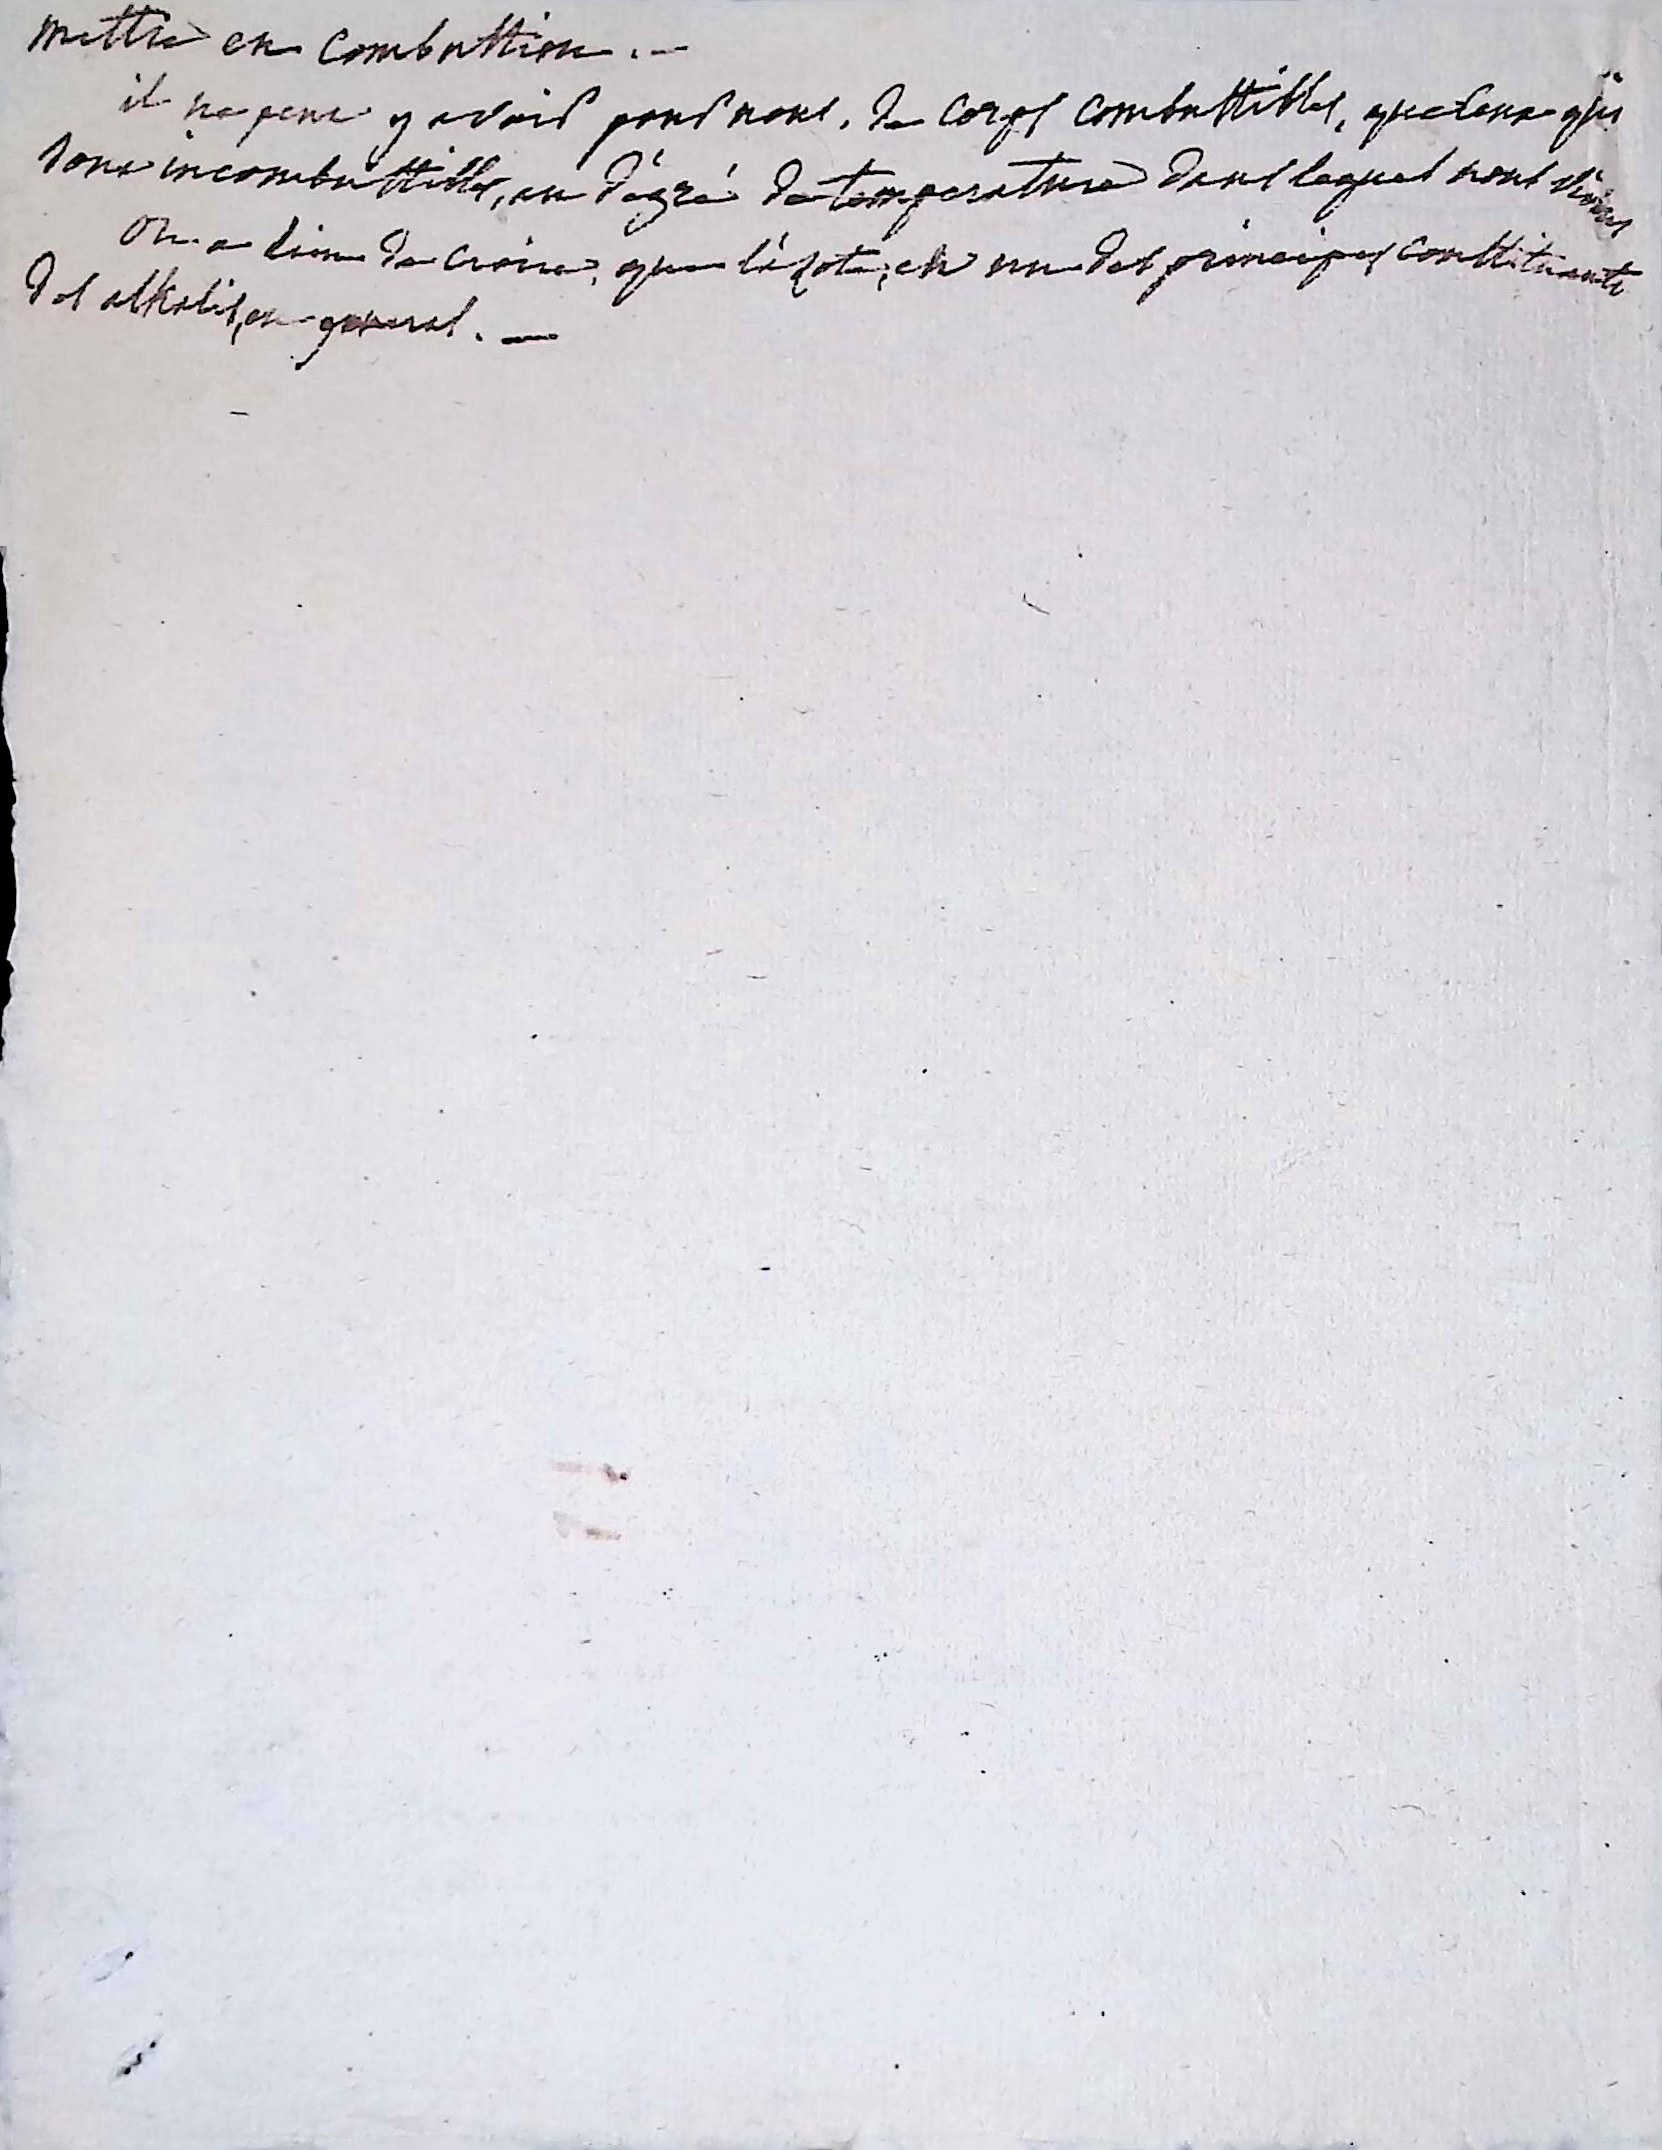 mettre en combustion. —
il ne peut y avoir pour nous, de corps combustibles, que ceux qui
sont incombustibles, au dégré de temperature dans lequel nous vivons
On a lieu de croire, que l'azote, est un des principes constituants
des alkalis, en general. —